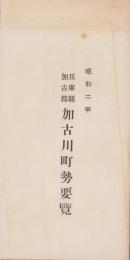 昭和二年
兵庫縣
加古郡
加古川町勢要覽